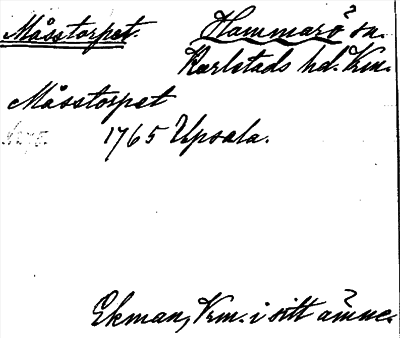 Måsstorpet. Hammarö sn.
Karlstads hd. Vrm.
Måsstorpet
1765 Upsala.
Ekman, Vrm. i sitt ämne.